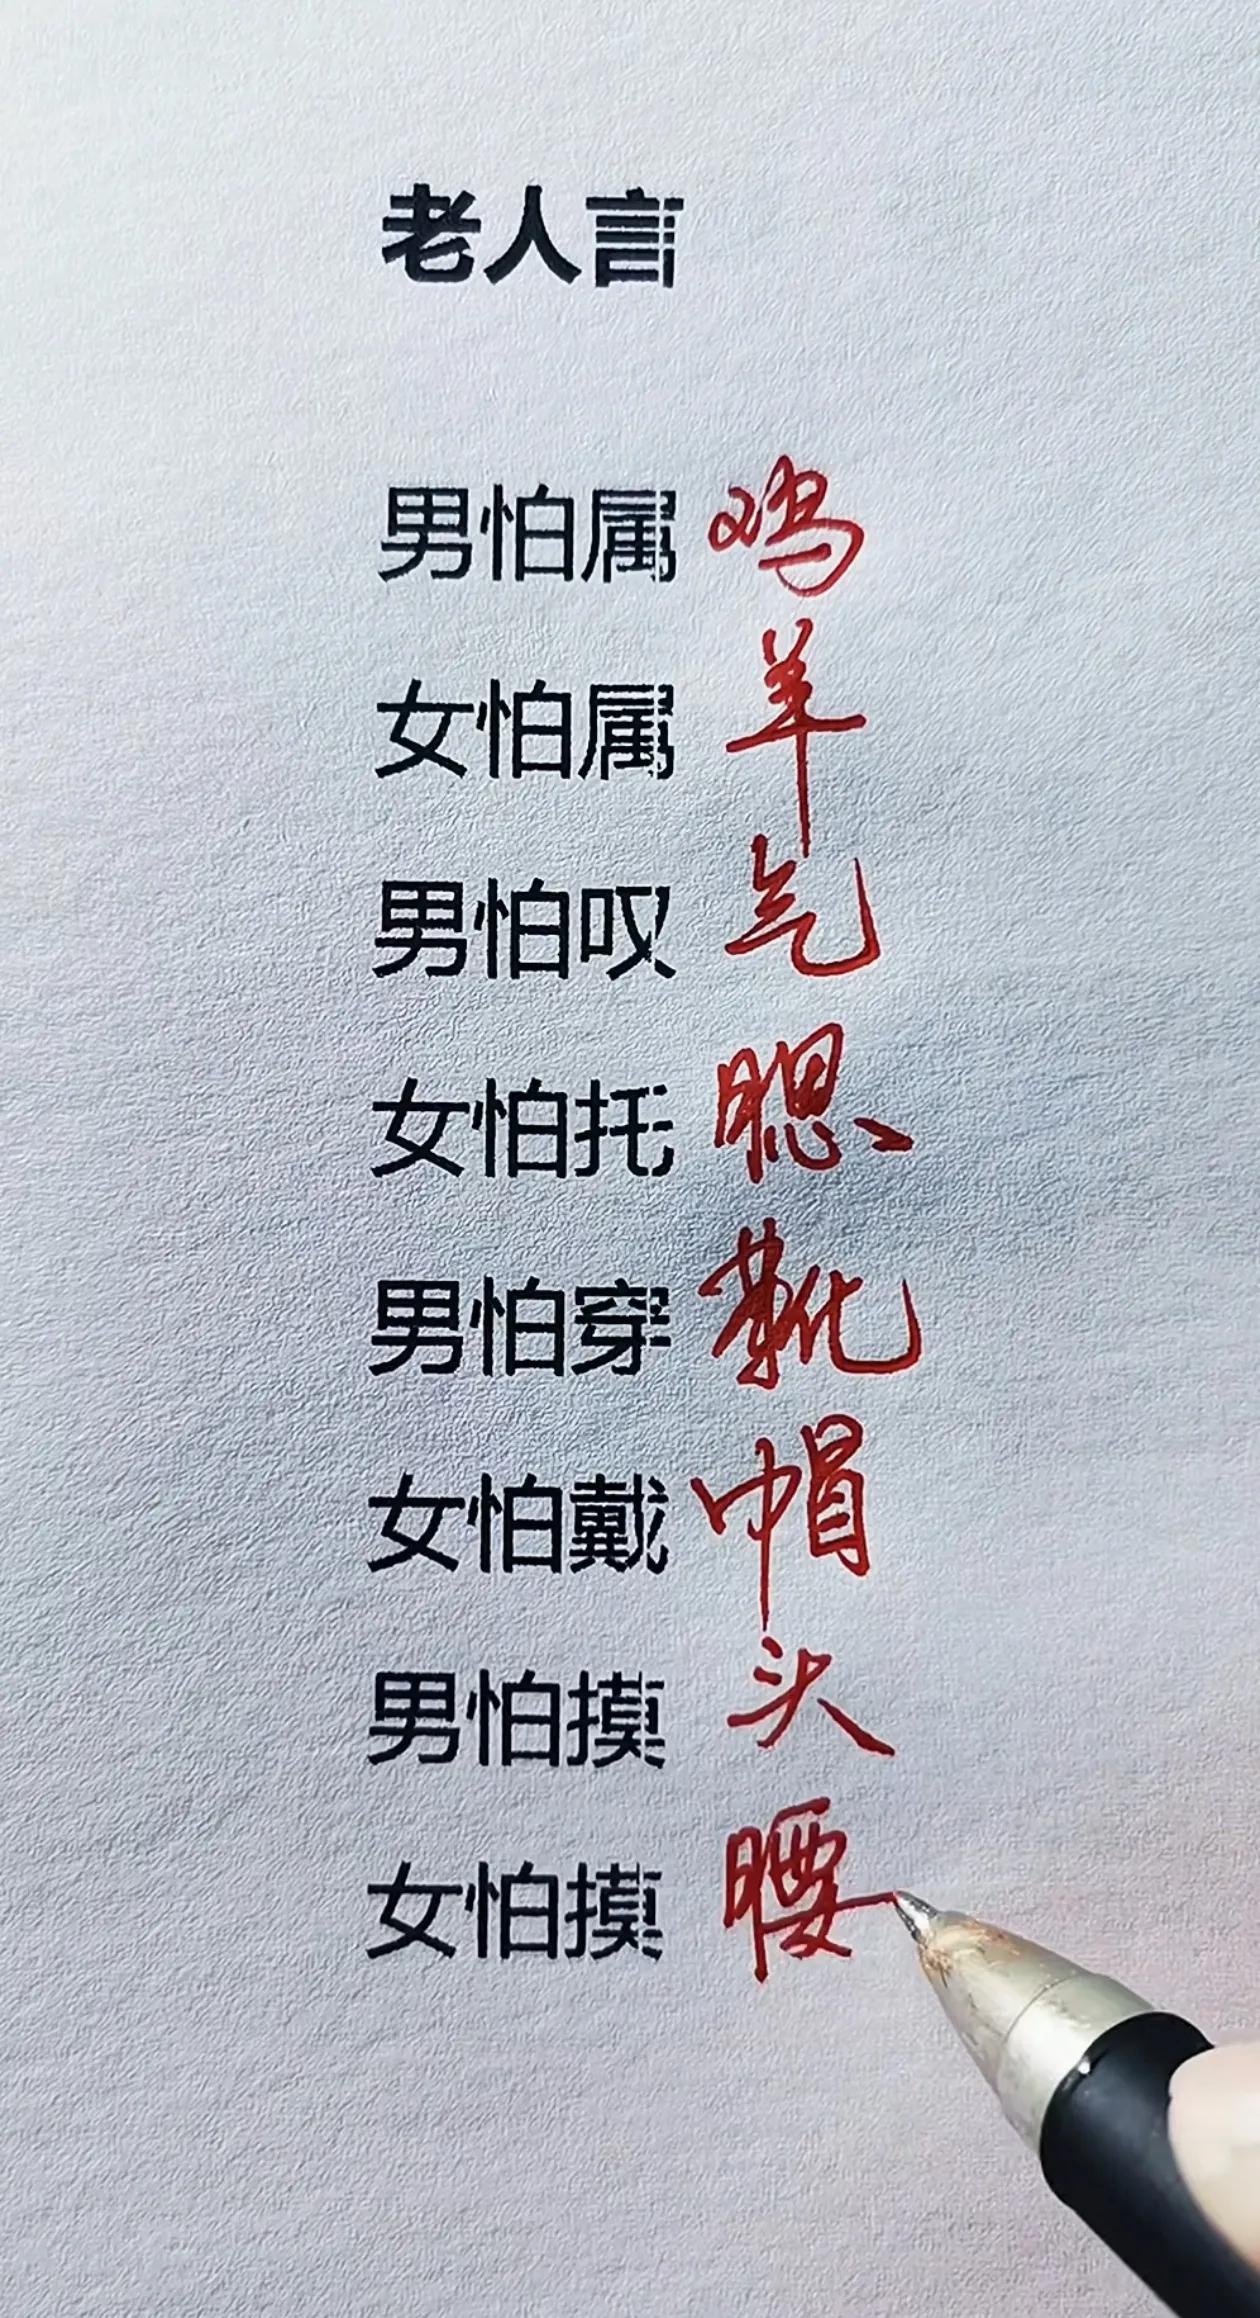 老人言
男怕属鸡
女怕属羊
男怕叹气
女怕托腮
男怕穿靴
女怕戴帽
男怕摸头
女怕摸腰